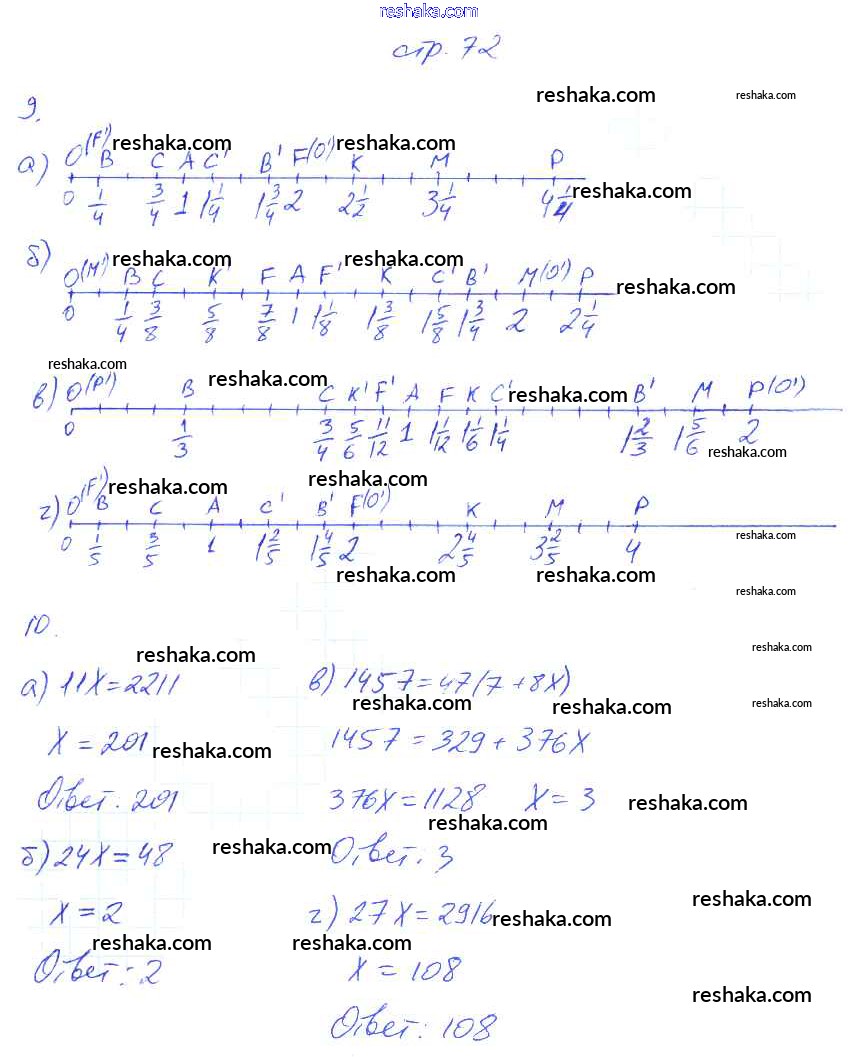 reshaka.com
стр. 72
reshaka.com reshaka.com
9.
reshaka.com reshaka.com
а) O(F') B C A C' B' F(O') K M P
0 1/4 3/4 1 1 1/4 1 3/4 2 2 1/2 3 1/4 4 1/4
reshaka.com
reshaka.com reshaka.com
б) O(M') B C K' F A F' K C' B' M(O') P
reshaka.com
0 1/4 3/8 5/8 7/8 1 1 1/8 1 3/8 1 5/8 1 3/4 2 2 1/4
reshaka.com
reshaka.com
в) O(P') B C K' F' A F K C' B' M P(O')
reshaka.com
0 1/3 3/4 5/6 11/12 1 1 1/12 1 1/6 1 1/4 1 2/3 1 5/6 2
reshaka.com
reshaka.com
reshaka.com
г) O(F') B C A C' B' F(O') K M P
0 1/5 3/5 1 1 2/5 1 4/5 2 2 4/5 3 2/5 4
reshaka.com
reshaka.com reshaka.com
reshaka.com
10.
reshaka.com reshaka.com
а) 11x=2211 в) 1457=47(7+8x)
reshaka.com reshaka.com reshaka.com
x=201 1457=329+376x
reshaka.com
Ответ: 201 376x=1128 x=3
reshaka.com
reshaka.com
б) 24x=48 Ответ: 3
reshaka.com
reshaka.com
x=2 г) 27x=2916
reshaka.com
reshaka.com reshaka.com
Ответ: 2 x=108
reshaka.com
Ответ: 108